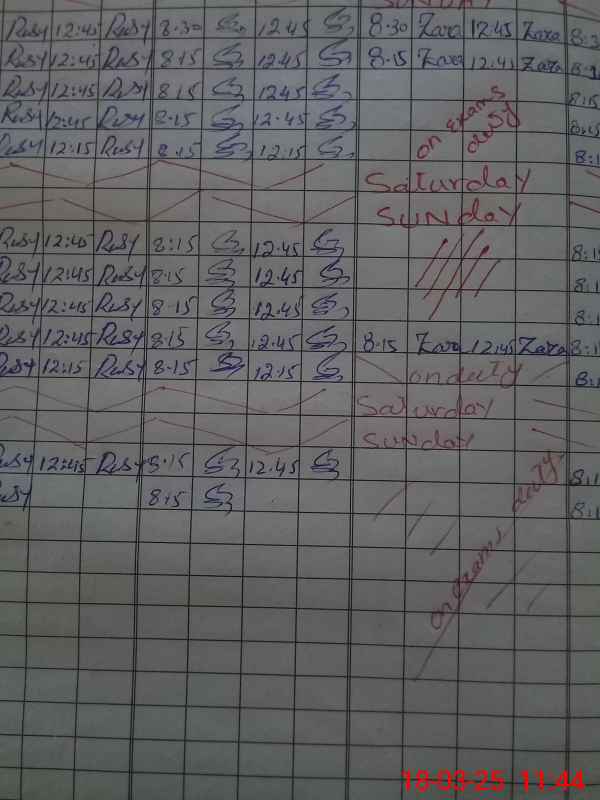 SUNDAY
Rosy 12:45 Rosy 8.30 12.45 8.30 Zara 12.45 Zara
Rosy 12:45 Rosy 8.15 12.45 8.15 Zara 12.45 Zara
Rosy 12:45 Rosy 8.15 12.45 8:15
Rosy 12:45 Rosy 8.15 12.45 8:15
Rosy 12:15 Rosy 8.15 12:15
on exams
duty
Saturday
SUNday
Rosy 12:45 Rosy 8:15 12.45
Rosy 12:45 Rosy 8.15 12.45
Rosy 12:45 Rosy 8.15 12.45
Rosy 12:45 Rosy 8.15 12.45 8.15 Zara 12.45 Zara
Rosy 12:15 Rosy 8.15 12.15 on duty
Saturday
SUNDAY
Rosy 12:45 Rosy 8.15 12.45
Rosy 8.15
on exams duty
18-03-25 11:44